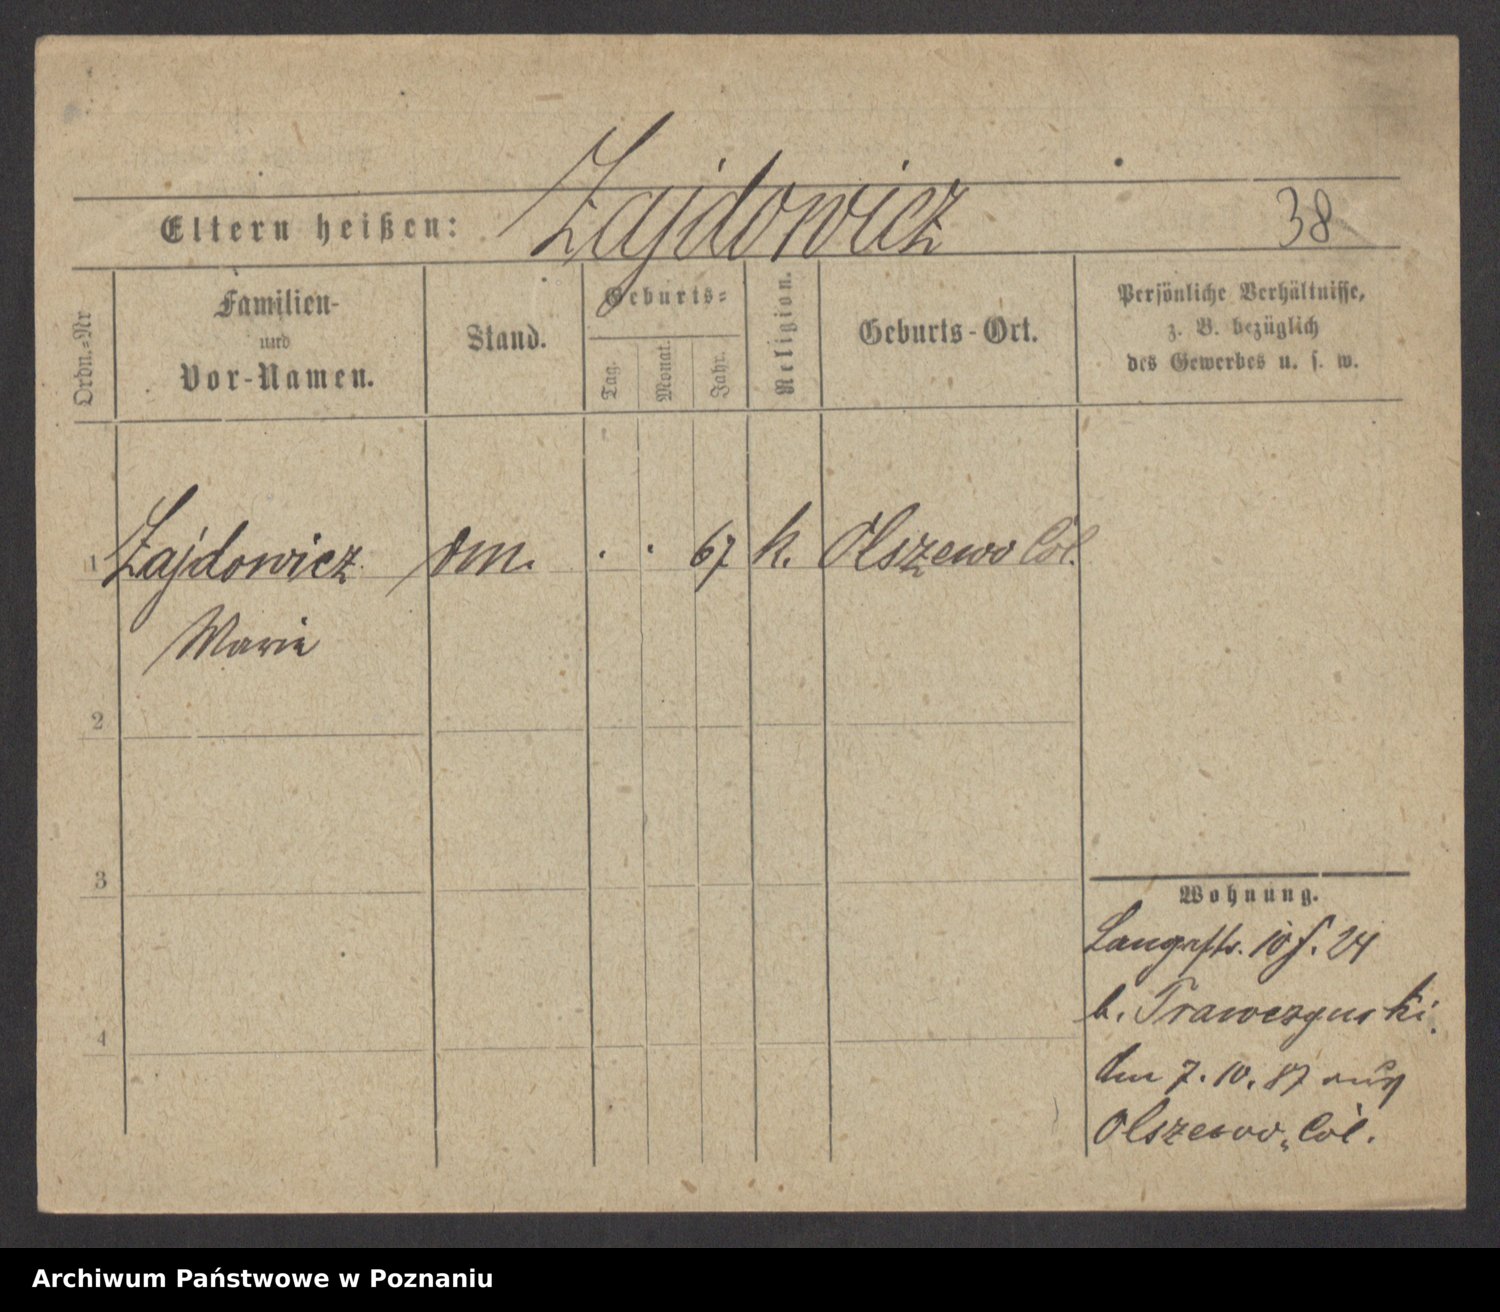 Zajdowicz
Eltern heißen: 38
Ordn.=Nr
Familien-
und
Vor-Namen.
Stand.
Geburts=
Tag.
Monat.
Jahr.
Religion.
Geburts-Ort.
Persönliche Verhältnisse,
z. B. bezüglich
des Gewerbes u. s. w.
1 Zajdowicz . . 67 k. Olszewo Col.
Marie
2
3
4
Wohnung.
Langestr. 10 24
b. Trawczynski.
den 7.10.87 aus
Olszewo, Col.
Archiwum Państwowe w Poznaniu